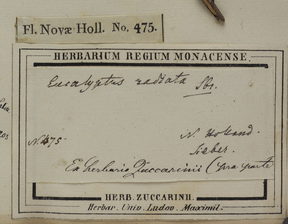 Fl. Novæ Holl. No. 475.
HERBARIUM REGIUM MONACENSE.
Eucalyptus radiata Sbr.
N. 475
N. Holland.
Sieber.
Ex herbario Zuccarinii (pro parte
HERB. ZUCCARINII.
Herbar. Univ. Ludov. Maximil.